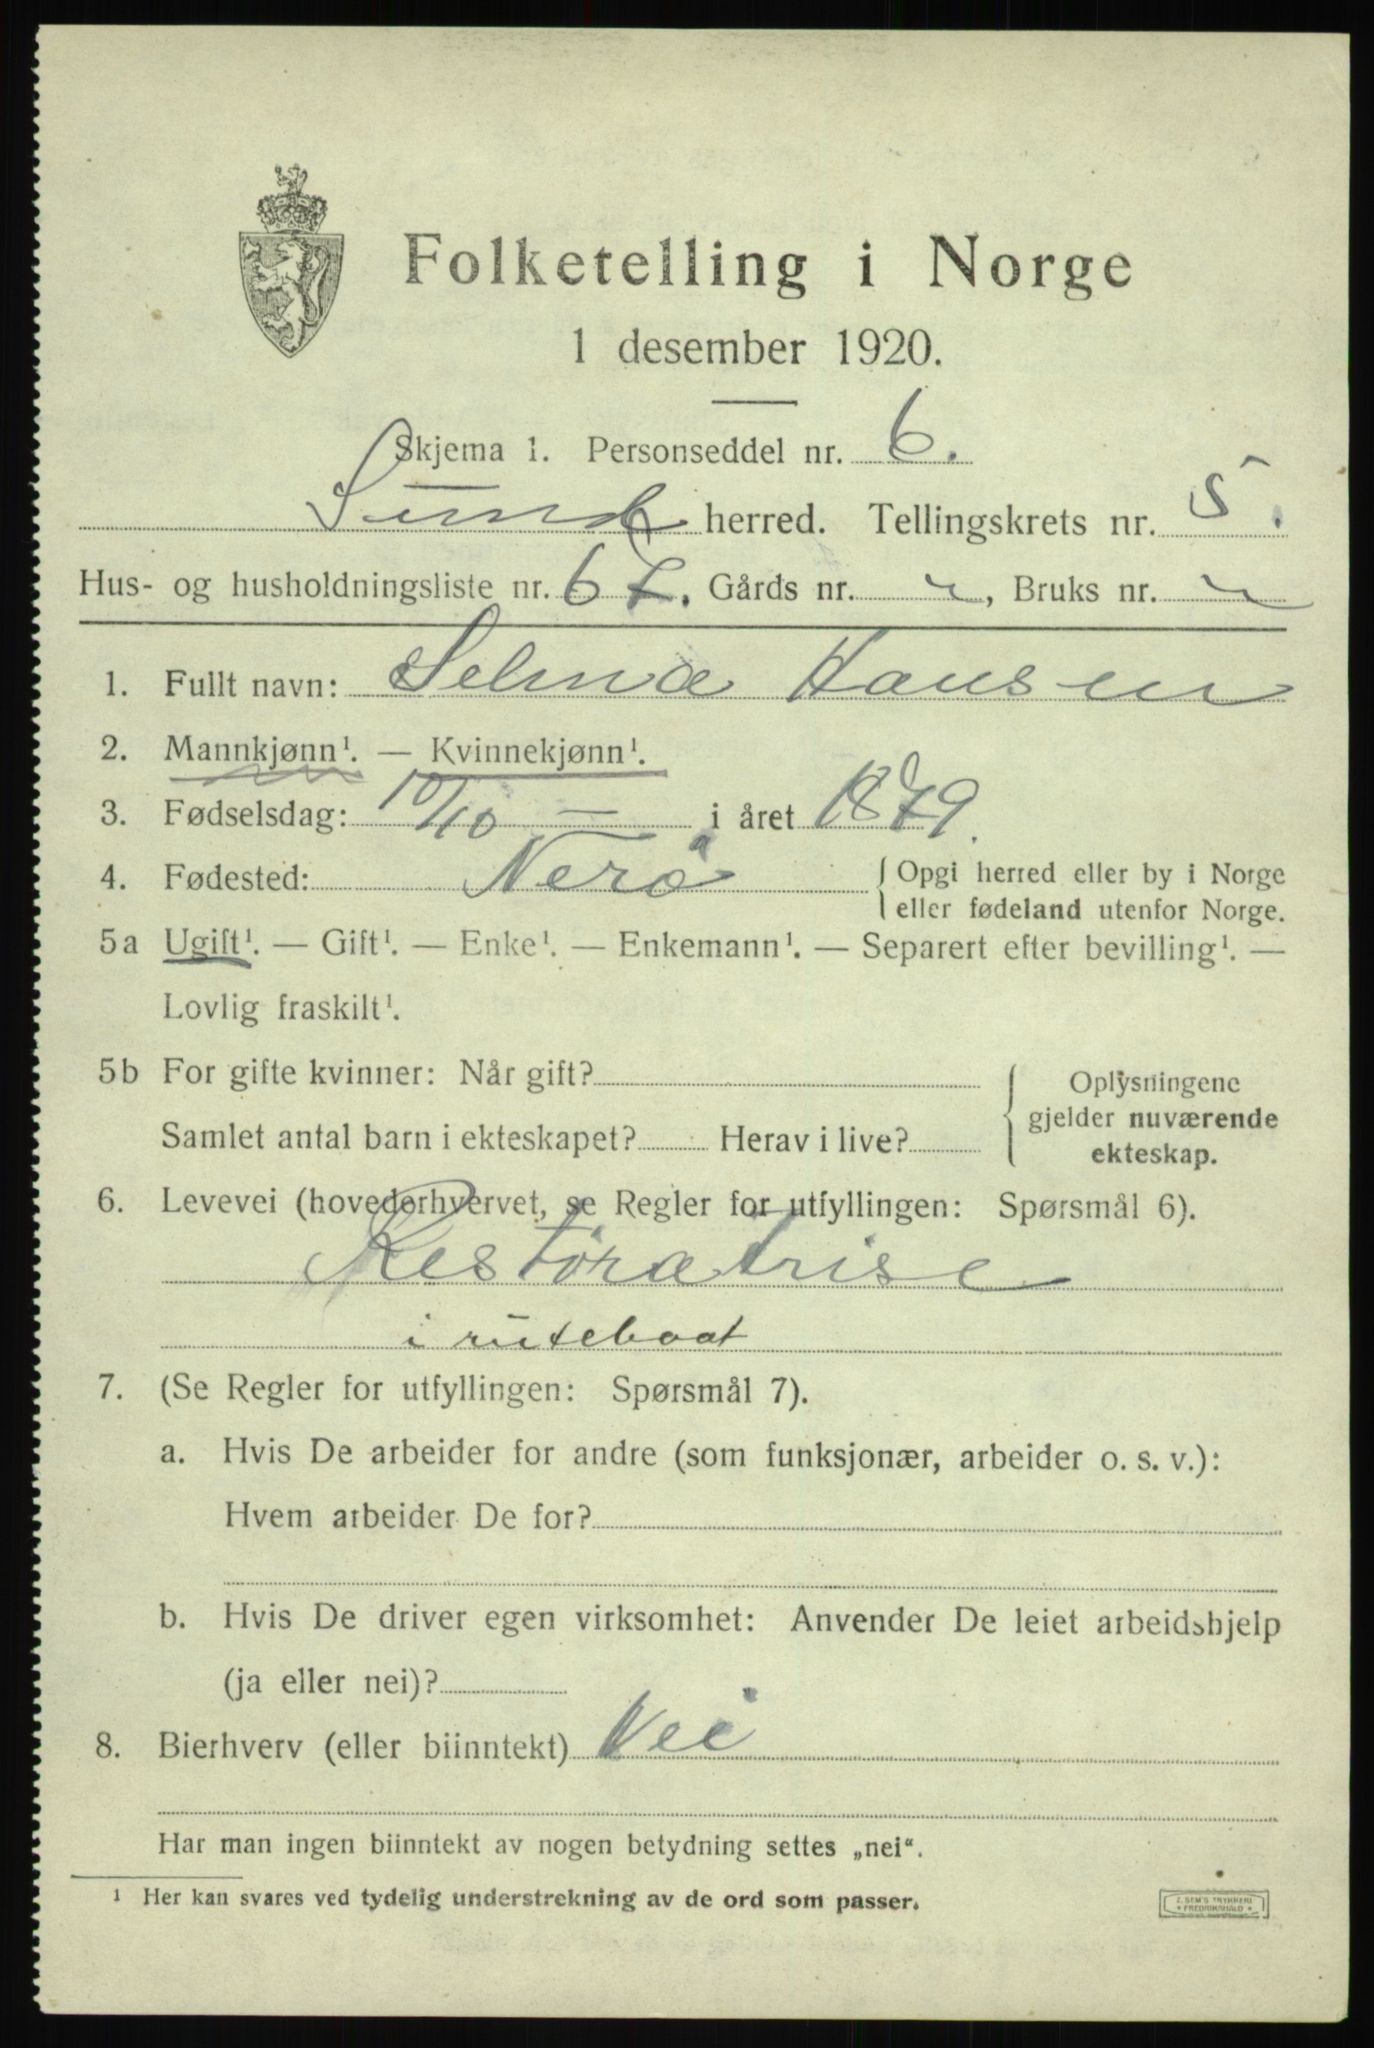 Folketelling i Norge
1 desember 1920.
Skjema 1. Personseddel nr. 6.
Sund herred. Tellingskrets nr. 5.
Hus- og husholdningsliste nr. 67. Gårds nr. „, Bruks nr. „
1. Fullt navn: Selma Hansen
2. Mannkjønn¹. — Kvinnekjønn¹.
3. Fødselsdag: 10/10 — i året 1879.
4. Fødested: Nerø { Opgi herred eller by i Norge
eller fødeland utenfor Norge.
5a Ugift¹. — Gift¹. — Enke¹. — Enkemann¹. — Separert efter bevilling¹. —
Lovlig fraskilt¹.
5b For gifte kvinner: Når gift? { Oplysningene
gjelder nuværende
Samlet antal barn i ekteskapet? Herav i live?
ekteskap.
6. Levevei (hovederhvervet, se Regler for utfyllingen: Spørsmål 6).
Restoratrise
i ruteboat
7. (Se Regler for utfyllingen: Spørsmål 7).
a. Hvis De arbeider for andre (som funksjonær, arbeider o. s. v.):
Hvem arbeider De for?
b. Hvis De driver egen virksomhet: Anvender De leiet arbeidshjelp
(ja eller nei)?
8. Bierhverv (eller biinntekt) Nei
Har man ingen biinntekt av nogen betydning settes „nei“.
¹ Her kan svares ved tydelig understrekning av de ord som passer.
Z. SEM'S TRYKKERI
• FREDRIKSHALD •